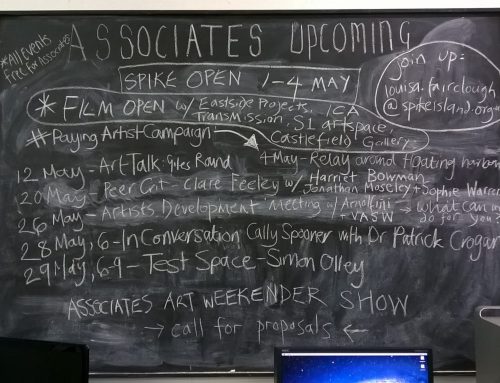 *All Events
Free for Associates
ASSOCIATES UPCOMING
Join up:
louisa.fairclough
@spikeisland.org
SPIKE OPEN 1-4 MAY
* FILM OPEN w/ Eastside Projects, ICA
Transmission, S1 artspace,
Castlefield Gallery
# Paying Artist Campaign
4 May - Relay around floating harbour
12 May - Art Talk: Giles Round
20 May - Peer Crit - Clare Feeley w/ Harriet Bowman
Jonathan Moseley + Sophie
26 May - Artists Development Meeting w/ Arnolfini
+ VASW → what can
do for you
28 May, 6 - In Conversation Cally Spooner with Dr Patrick Crogan
29 May, 6-9 - Test Space - Simon Olley
ASSOCIATES ART WEEKENDER SHOW
→ call for proposals ←